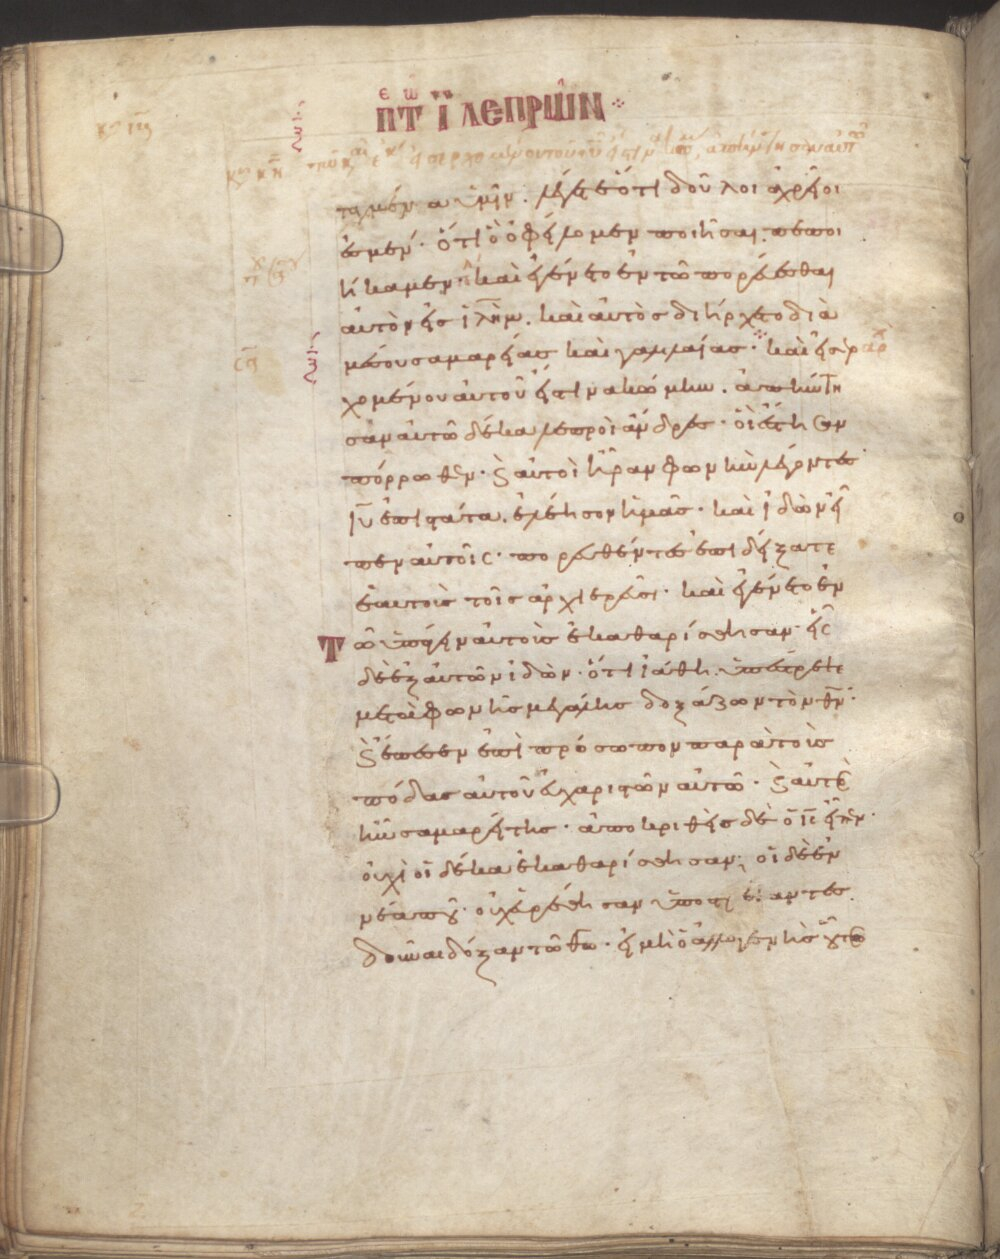 πτ ϊ λεπρῶν
ταγμένα ὑμῖν. λέγετε ὅτι δοῦλοι ἀχρεῖοι
ἐσμεν. ὅτι ὃ ὀφείλομεν ποιῆσαι πεποι
ήκαμεν. καὶ ἐγένετο ἐν τῶ πορεύεσθαι
αὐτὸν εἰς ἱλημ. καὶ αὐτὸς διήρχετο διὰ
μέσου σαμαρείας καὶ γαλιλαίας. καὶ εἰσερ
χομένου αὐτοῦ εἴς τινα κώμην. ἀπήντη
σαν αὐτῶ δέκα λεπροὶ ἄνδρες. οἳ ἔστησαν
πόρρωθεν. καὶ αὐτοὶ ἦραν φωνὴν λέγοντες
ιυ ἐπιστάτα. ἐλέησον ἡμᾶς. καὶ ἰδὼν εἶ
πεν αὐτοῖς. πορευθέντες ἐπιδείξατε
ἑαυτοὺς τοῖς ἀρχιερεῦσι. καὶ ἐγένετο ἐν
τῶ ὑπάγειν αὐτοὺς ἐκαθαρίσθησαν. εἷς
δὲ ἐξ αὐτῶν ἰδὼν. ὅτι ἰάθη. ὑπέστρεψε
μετὰ φωνῆς μεγάλης δοξάζων τὸν θν.
καὶ ἔπεσεν ἐπὶ πρόσωπον παρὰ τοὺς
πόδας αὐτοῦ εὐχαριστῶν αὐτῶ. καὶ αὐτὸς
ἦν σαμαρείτης. ἀποκριθεὶς δὲ ὁ ις εἶπεν.
οὐχὶ οἱ δέκα ἐκαθαρίσθησαν; οἱ δὲ ἐν
νέα ποῦ. οὐχ εὑρέθησαν ὑποστρέψαντες
δοῦναι δόξαν τῶ θω. εἰ μὴ ὁ ἀλλογενὴς οὗτος